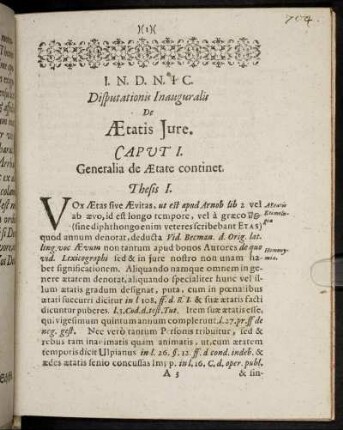 )(1)(
704
I. N. D. N. I C.
Disputationis Inauguralis
De
Ætatis Jure.
CAPUT I.
Generalia de Ætate continet.
Thesis I.
VOx Ætas sive Ævitas, ut est apud Arnob lib 2 vel
ab ævo, id est longo tempore, vel à græco
(sine diphthongo enim veteres scribebant ETAS)
quod annum denotat, deducta Vid. Becman. d. Orig. lat.
ling. voc Ævum non tantum apud bonos Autores de quo
vid. Lexicographi sed & in jure nostro non unam ha-
bet significationem. Aliquando namque omnem in ge-
nere ætatem denotat, aliquando specialiter hunc vel il-
lum ætatis gradum designat, puta, cum in pœnalibus
ætati succurri dicitur in l 108. ff. d. R. I. & suæ ætatis facti
dicuntur puberes. l.5.Cod.d.test.Tut. Item suæ ætatis esse,
qui vigesimum quintum annum complerunt. l.27. pr. ff de
neg. gest. Nec verò tantum Personis tribuitur, sed &
rebus tam inanimatis quam animatis, ut, cum ætatem
temporis dicit Ulpianus in l. 26. §. 12. ff. d cond. indeb. &
ædes ætatis senio concussas Imp. in l. 16. C. d. oper. publ.
A 3 & sin-
Ætatis
Etymolo-
gia
Homony-
mia.